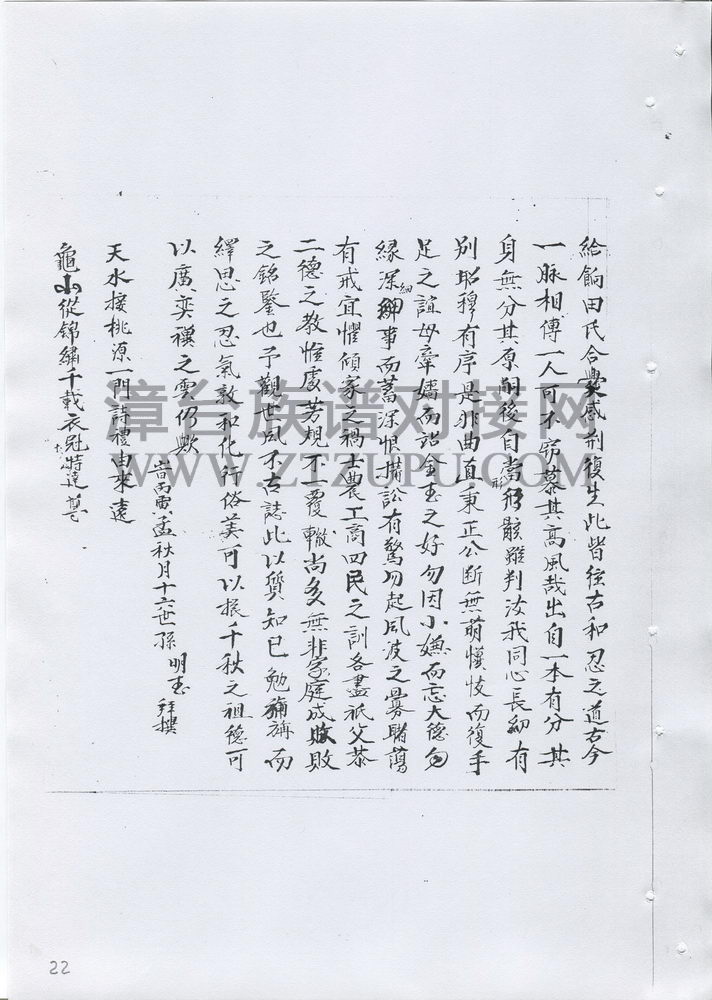 給餉田氏合爨感荆復生此皆往古和忍之道古今
一脉相傳一人可不竊慕其高風哉出自一本有分其
身無分其原嗣後自當形骸雖判汝我同心長幼有
別昭穆有序是非曲直秉正公断無萌懷忮而復手
足之誼毋牽嬬而詒金玉之好勿因小嫌而忘大德勿
緣深細事而蓄深恨搆訟有驚勿起風波之釁賭蕩
有戒宜懼傾家之禍士農工商四民之訓各盡祇父恭
二德之教惟處芳規不一覆轍尚多無非家庭成敗
之銘鑒也予觀世風不古誌此以質知已勉稱而
繹思之忍氣敦和化行俗美可以振千秋之祖德可
以廣奕禩之雲仍歟
岢丙寅孟秋月十六世孫 明 拜撰
天水接桃源一門詩禮由來遠
龜山從錦繡千載衣冠特達尊
漳台族谱对接网
WWW.ZTZUPU.COM
22